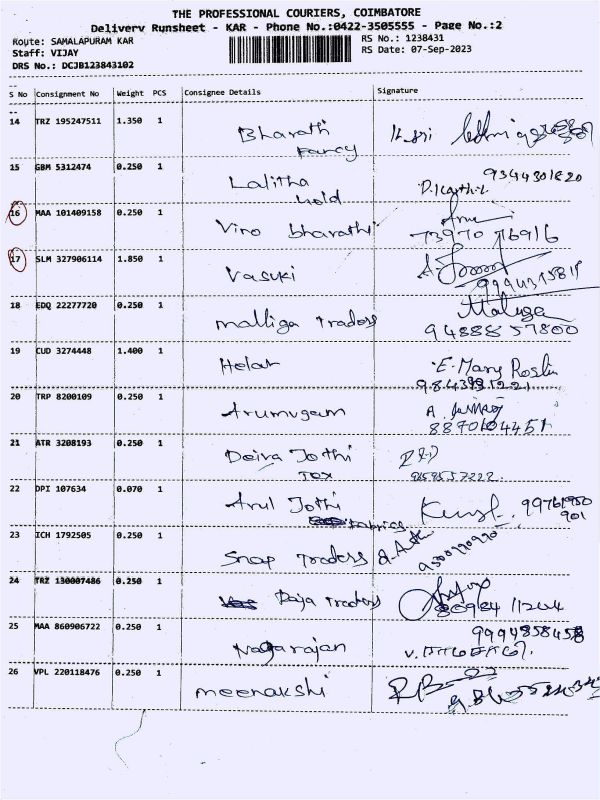 THE PROFESSIONAL COURIERS, COIMBATORE
Delivery Runsheet - KAR - Phone No.:0422-3505555 - Page No.:2
Route: SAMALAPURAM KAR
RS No.: 1238431
Staff: VIJAY
RS Date: 07-Sep-2023
DRS No.: DCJB123843102
S No Consignment No Weight PCS Consignee Details Signature
14 TRZ 195247511 1.350 1 Bharathi
Fancy
15 GBM 5312474 0.250 1 Lalitha 9344301820
Gold
16 MAA 101409158 0.250 1 Vino bharathi
73970 76916
17 SLM 327906114 1.850 1 Vasuki
18 EDQ 22277720 0.250 1 Malliga Traders
94888 57800
19 CUD 3274448 1.400 1 Helan E. Mary Roslin
20 TRP 8200109 0.250 1 Arumugam A.
8870604451
21 ATR 3208193 0.250 1 Deiva Jothi
Tex
22 DPI 107634 0.070 1 Arul Jothi 99761950
Fabrics 901
23 ICH 1792505 0.250 1 Snap Traders
24 TRZ 130007486 0.250 1 Raja Traders
25 MAA 860906722 0.250 1 Nagarajan 9994858458
26 VPL 220118476 0.250 1 Meenakshi